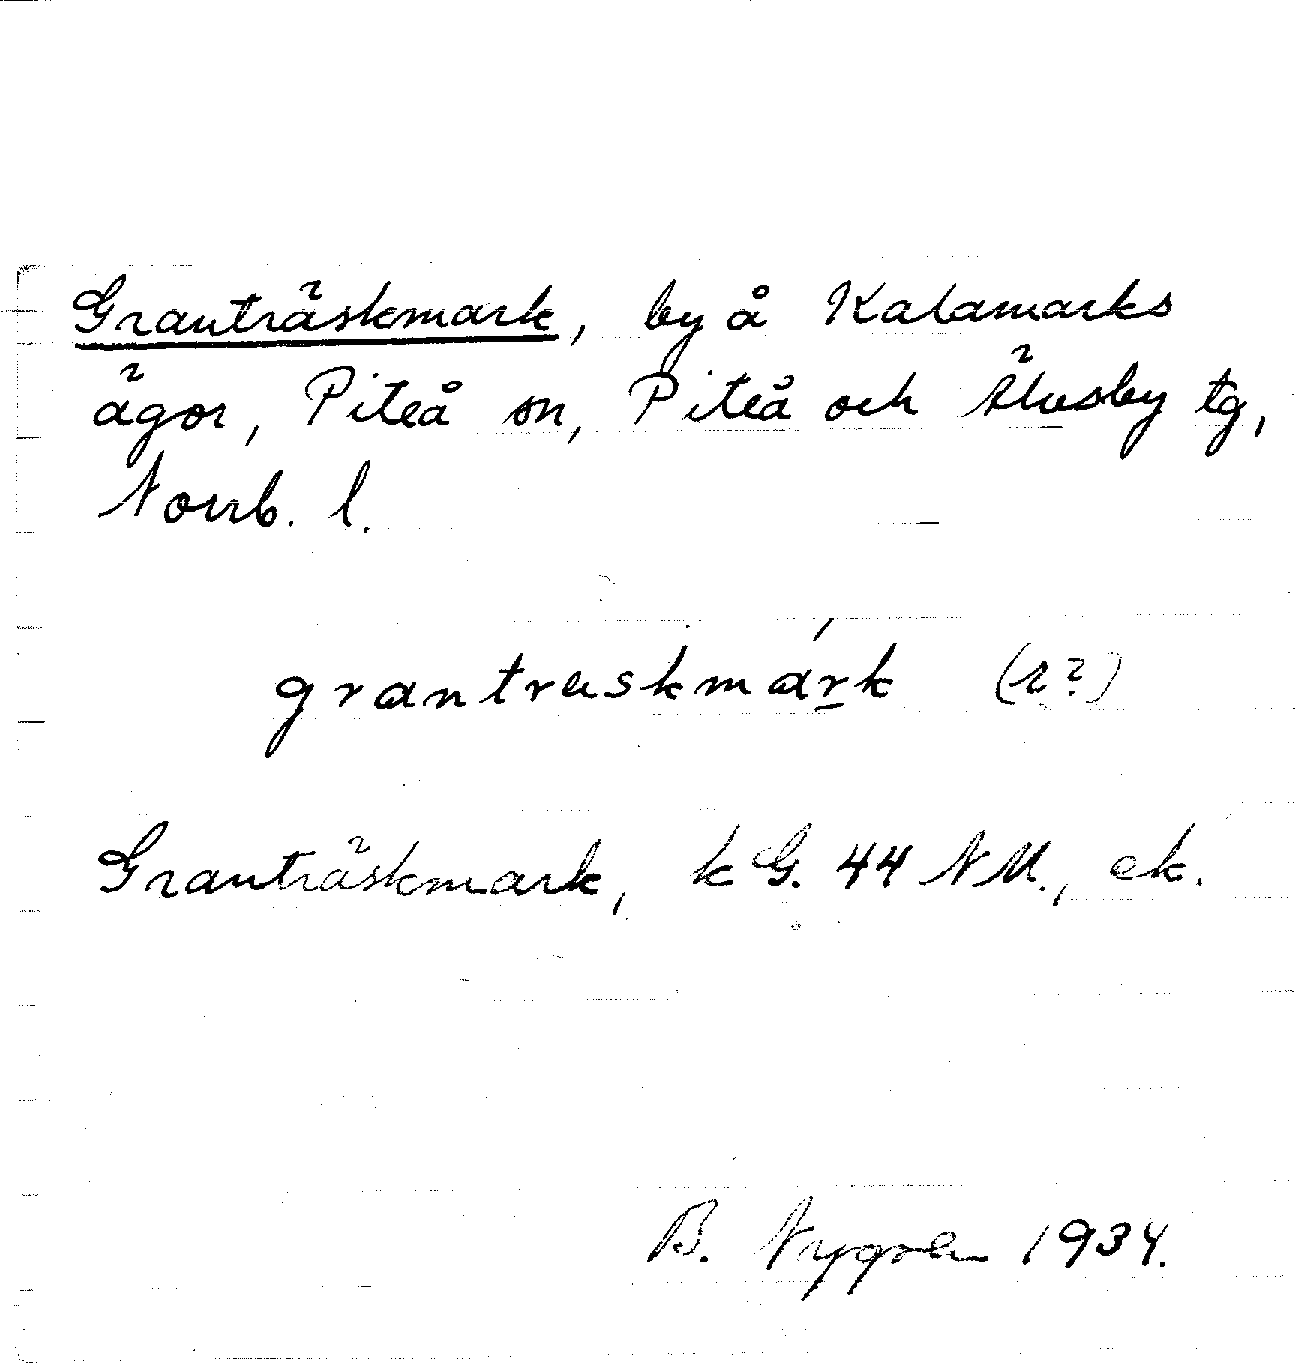 Granträskmark, by å Kalamarks
ägor, Piteå sn, Piteå och Älvsby tg,
Norrb. l.
grantrɑskmárk (r?)
Granträskmark, k G. 44 NM., ek.
B. Nygren 1934.